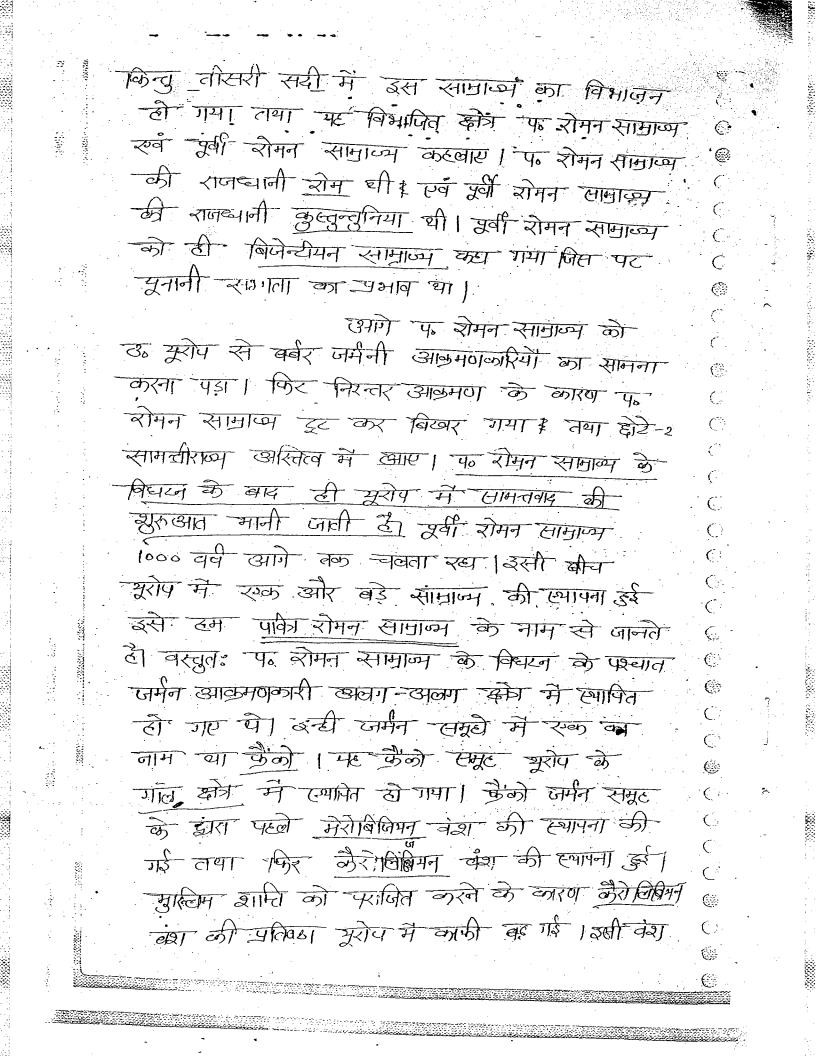 किन्तु तीसरी सदी में इस साम्राज्य का विभाजन
हो गया तथा यह विभाजित क्षेत्र प० रोमन साम्राज्य
एवं पूर्वी रोमन साम्राज्य कहलाए। प० रोमन साम्राज्य
की राजधानी रोम थी एवं पूर्वी रोमन साम्राज्य
की राजधानी कुस्तुन्तुनिया थी। पूर्वी रोमन साम्राज्य
को ही बिजेन्टीयन साम्राज्य कहा गया जिस पर
यूनानी सभ्यता का प्रभाव था।
आगे प० रोमन साम्राज्य को
उ० यूरोप से बर्बर जर्मनी आक्रमणकारियों का सामना
करना पड़ा। फिर निरन्तर आक्रमण के कारण प०
रोमन साम्राज्य टूट कर बिखर गया तथा छोटे-२
सामन्तीराज्य अस्तित्व में आए। प० रोमन साम्राज्य के
विघटन के बाद ही यूरोप में सामन्तवाद की
शुरुआत मानी जाती है। पूर्वी रोमन साम्राज्य
1000 वर्ष आगे तक चलता रहा। इसी बीच
यूरोप में एक और बड़े साम्राज्य की स्थापना हुई
इसे हम पवित्र रोमन साम्राज्य के नाम से जानते
है। वस्तुतः प० रोमन साम्राज्य के विघटन के पश्चात
जर्मन आक्रमणकारी अलग-अलग क्षेत्र में स्थापित
हो गए थे। इन्ही जर्मन समूहो में एक का
नाम था फ्रैंको। यह फ्रैंको समूह यूरोप के
गाल क्षेत्र में स्थापित हो गया। फ्रैंको जर्मन समूह
के द्वारा पहले मेरोबिजियन वंश की स्थापना की
गई तथा फिर कैरोलिंजियन वंश की स्थापना हुई।
मुस्लिम शक्ति को पराजित करने के कारण कैरोलिंजियन
वंश की प्रतिष्ठा यूरोप में काफी बढ़ गई। इसी वंश